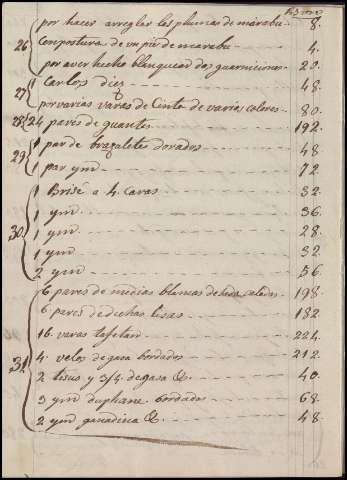 por hacer arreglar les plumas de marabu 8.
26 Compostura de un pie de marabu 4.
por aver hecho blanquear dos guarniciones 20.
27 1 Carlos diez 48.
por varias varas de Cinta de varios colores 80.
28 24 pares de guantes 192.
29 1 par de brazaletes dorados 48
1 par ym 72
1 Brisé a 4 caras 32.
1 ym 36.
30 1 ym 28.
1 ym 32
2 ym 56
6 pares de medias blancas de calados 198.
6 pares de dichas lisas 182
16 varas tafetan 224
31 4 velos de gasa bordados 212
2 tisus y 3/4 de gasa &. 40.
3 ym bordados 68.
2 ym &. 48.